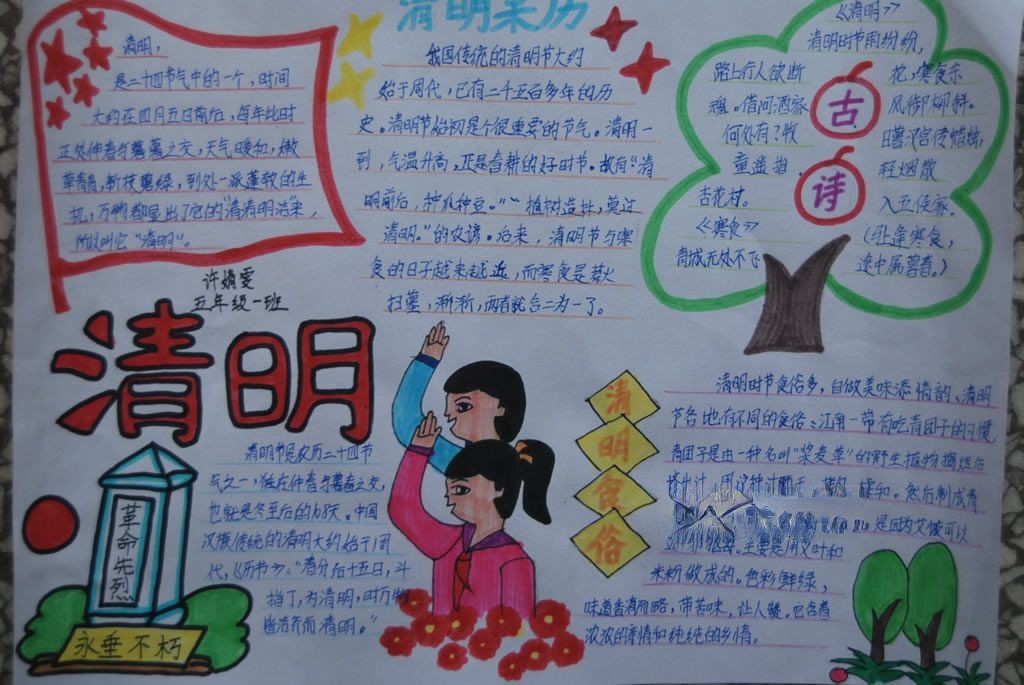 清明,
是二十四节气中的一个,时间
大约在四月五日前后,每年此时
正处仲春与暮春之交,天气暖和,嫩
草青青,新枝碧绿,到处一派蓬勃的生
机,万物都显出了它的"清清明洁来,
所以叫它"清明"。
许婧雯
五年级一班
清明来历
我国传统的清明节大约
始于周代,已有二千五百多年的历
史。清明节始初是个很重要的节气。清明一
到,气温升高,正是春耕的好时节。故有"清
明前后,种瓜种豆。""植树造林,莫过
清明。"的农谚。后来,清明节与寒
食的日子越来越近,而寒食是禁火
扫墓,渐渐,两者就合二为一了。
《清明》
清明时节雨纷纷,
路上行人欲断
魂。借问酒家
何处有?牧
童遥指
杏花村。
《寒食》
城无处不飞
花,寒食东
风御柳斜。
日暮汉宫传蜡烛,
轻烟散
入五侯家。
(逢寒食,
途中属暮春。)
古
诗
清明
清明节是农历二十四节
气之一,在仲春与暮春之交,
也就是冬至后的108天。中国
汉族传统的清明大约始于周
代,《历书》:"春分后十五日,斗
指丁,为清明,时万物
皆洁而清明。"
革命先烈
永垂不朽
清
明
食
俗
清明时节食俗多,自做美味添情韵、清明
节各地有不同的食俗:江南一带有吃青团子的习惯
青团子是由一种名叫"浆麦草"的野生植物捣烂后
然后制成青
是因为艾
主要是用艾叶和
米粉做成的。色彩鲜绿,
味道香清而略,带苦味,让人馋。它含着
浓浓的亲情和纯纯的乡情。